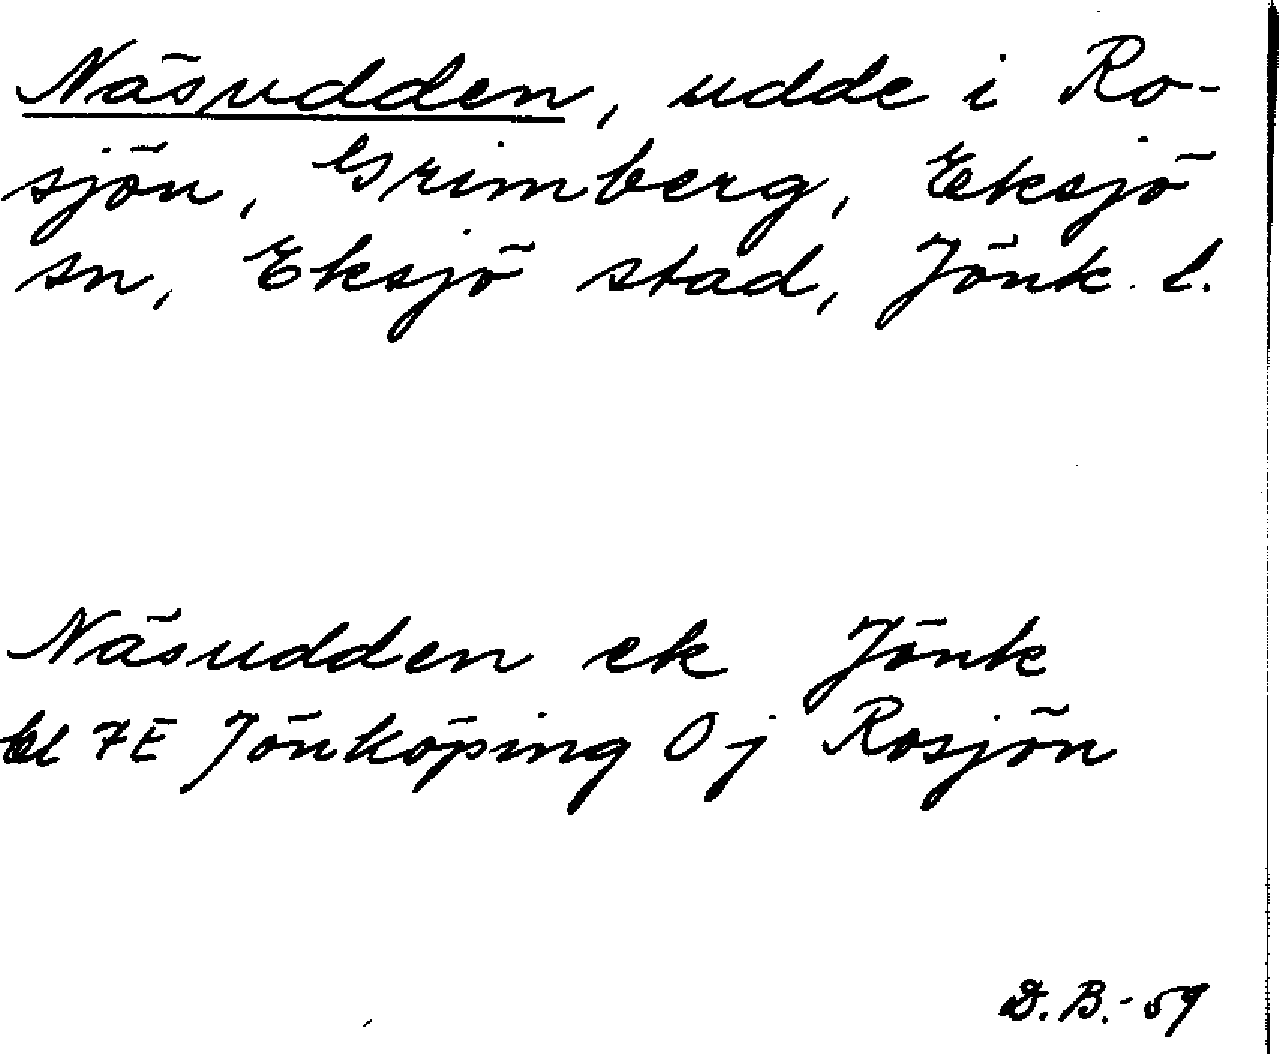 Näsudden, udde i Ro-
sjön, Grimberg, Eksjö
sn, Eksjö stad, Jönk. l.
Näsudden ek Jönk
bl 7E Jönköping 0 j Rosjön
D.B.-59